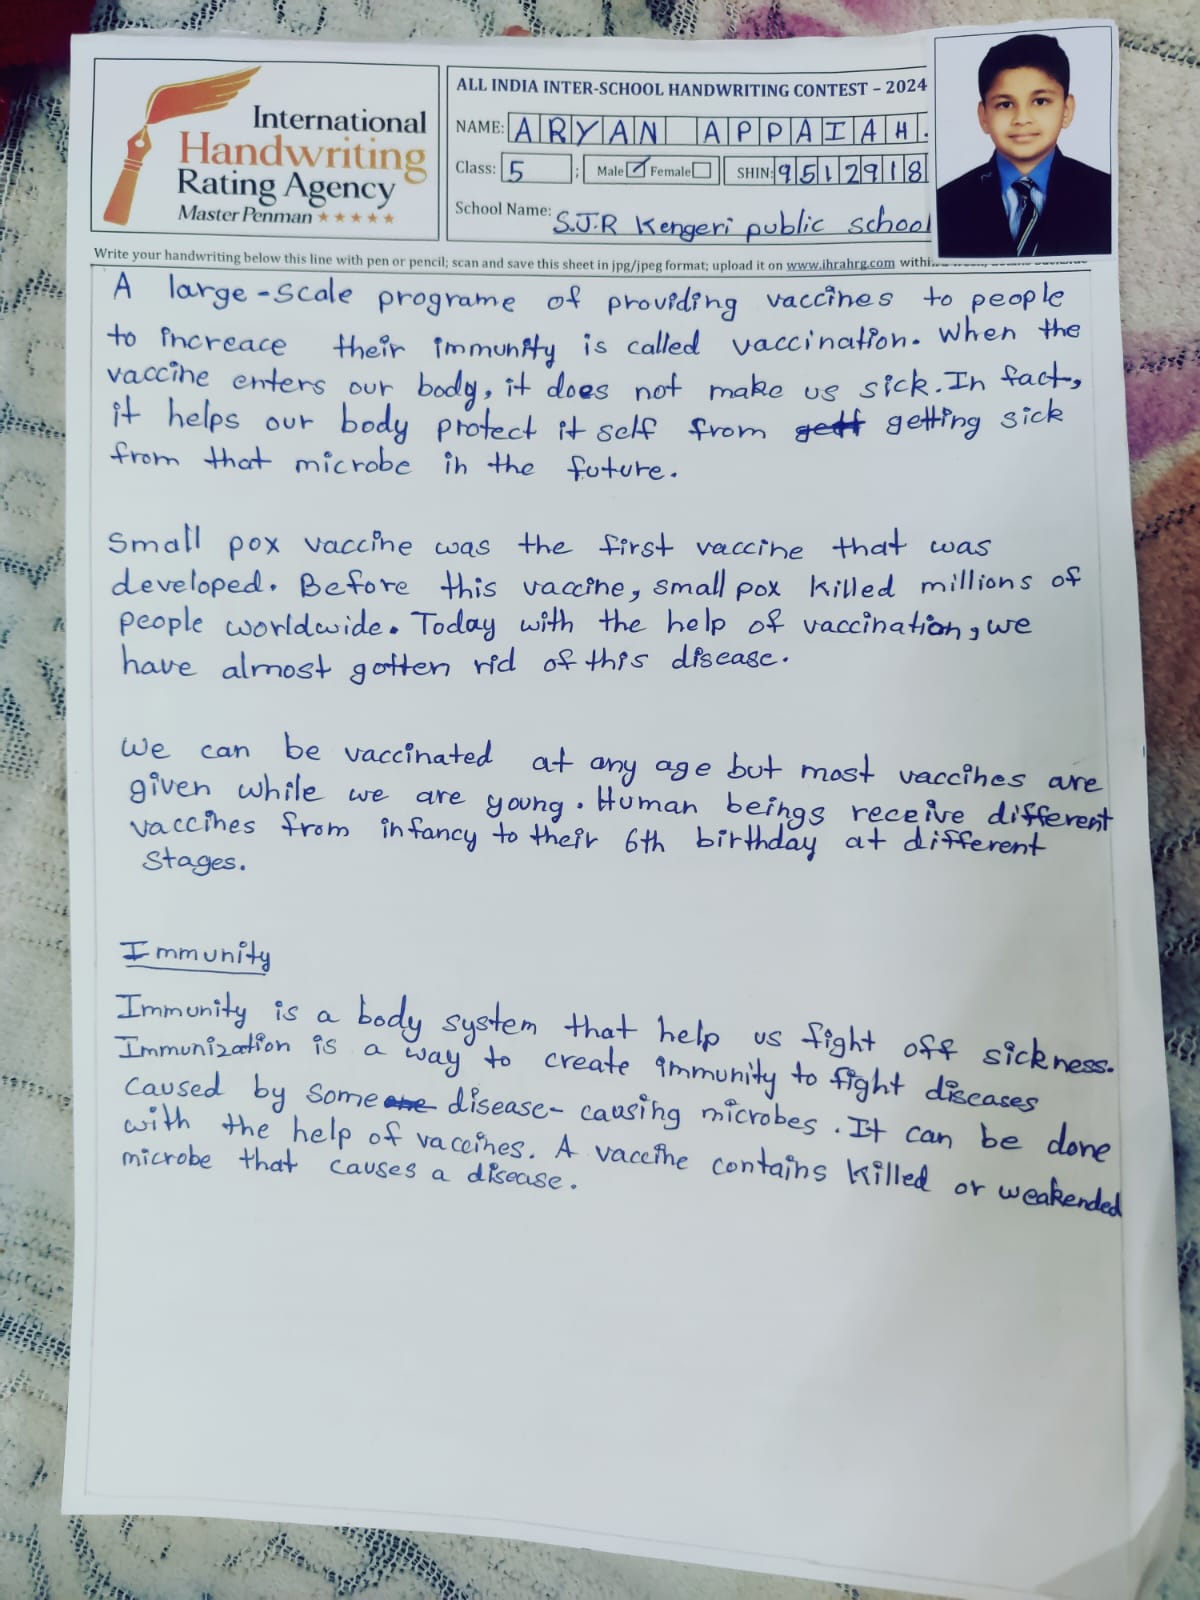 International
Handwriting
Rating Agency
Master Penman ★★★★★
ALL INDIA INTER-SCHOOL HANDWRITING CONTEST – 2024
NAME: ARYAN APPAIAH.
Class: 5 ; Male ✓ Female SHIN: 9512918
School Name: S.J.R Kengeri public school
Write your handwriting below this line with pen or pencil; scan and save this sheet in jpg/jpeg format; upload it on www.ihrahrg.com
A large-scale programe of providing vaccines to people
to increace their immunity is called vaccination. When the
vaccine enters our body, it does not make us sick. In fact,
it helps our body protect it self from gett getting sick
from that microbe in the future.
Small pox vaccine was the first vaccine that was
developed. Before this vaccine, small pox killed millions of
people worldwide. Today with the help of vaccination, we
have almost gotten rid of this disease.
We can be vaccinated at any age but most vaccines are
given while we are young. Human beings receive different
vaccines from infancy to their 6th birthday at different
stages.
Immunity
Immunity is a body system that help us fight off sickness.
Immunization is a way to create immunity to fight diseases
caused by some one disease-causing microbes. It can be done
with the help of vaccines. A vaccine contains killed or weakended
microbe that causes a disease.